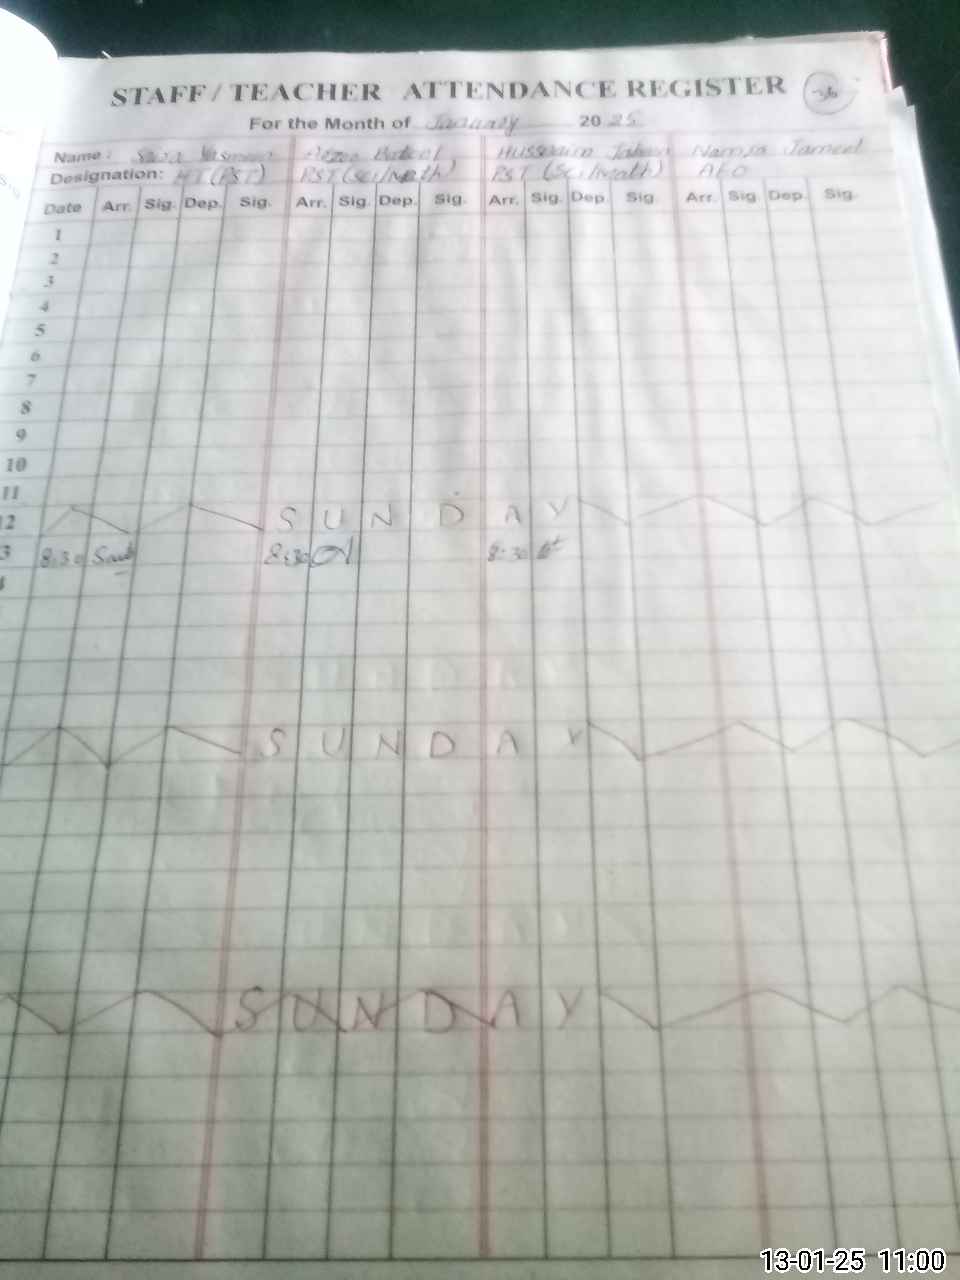 STAFF / TEACHER ATTENDANCE REGISTER
For the Month of January 2025
Name: Saira Yasmeen Batool Hussaira Jahan Namra Jameel
Designation: HT (PST) PST (Sci/Math) PST (Sci/Math) AEO
Date Arr. Sig. Dep. Sig. Arr. Sig. Dep. Sig. Arr. Sig. Dep Sig. Arr. Sig Dep. Sig.
1
2
3
4
5
6
7
8
9
10
11
2 SUNDAY
3 8:30 8:30 8:30
SUNDAY
SUNDAY
13-01-25 11:00